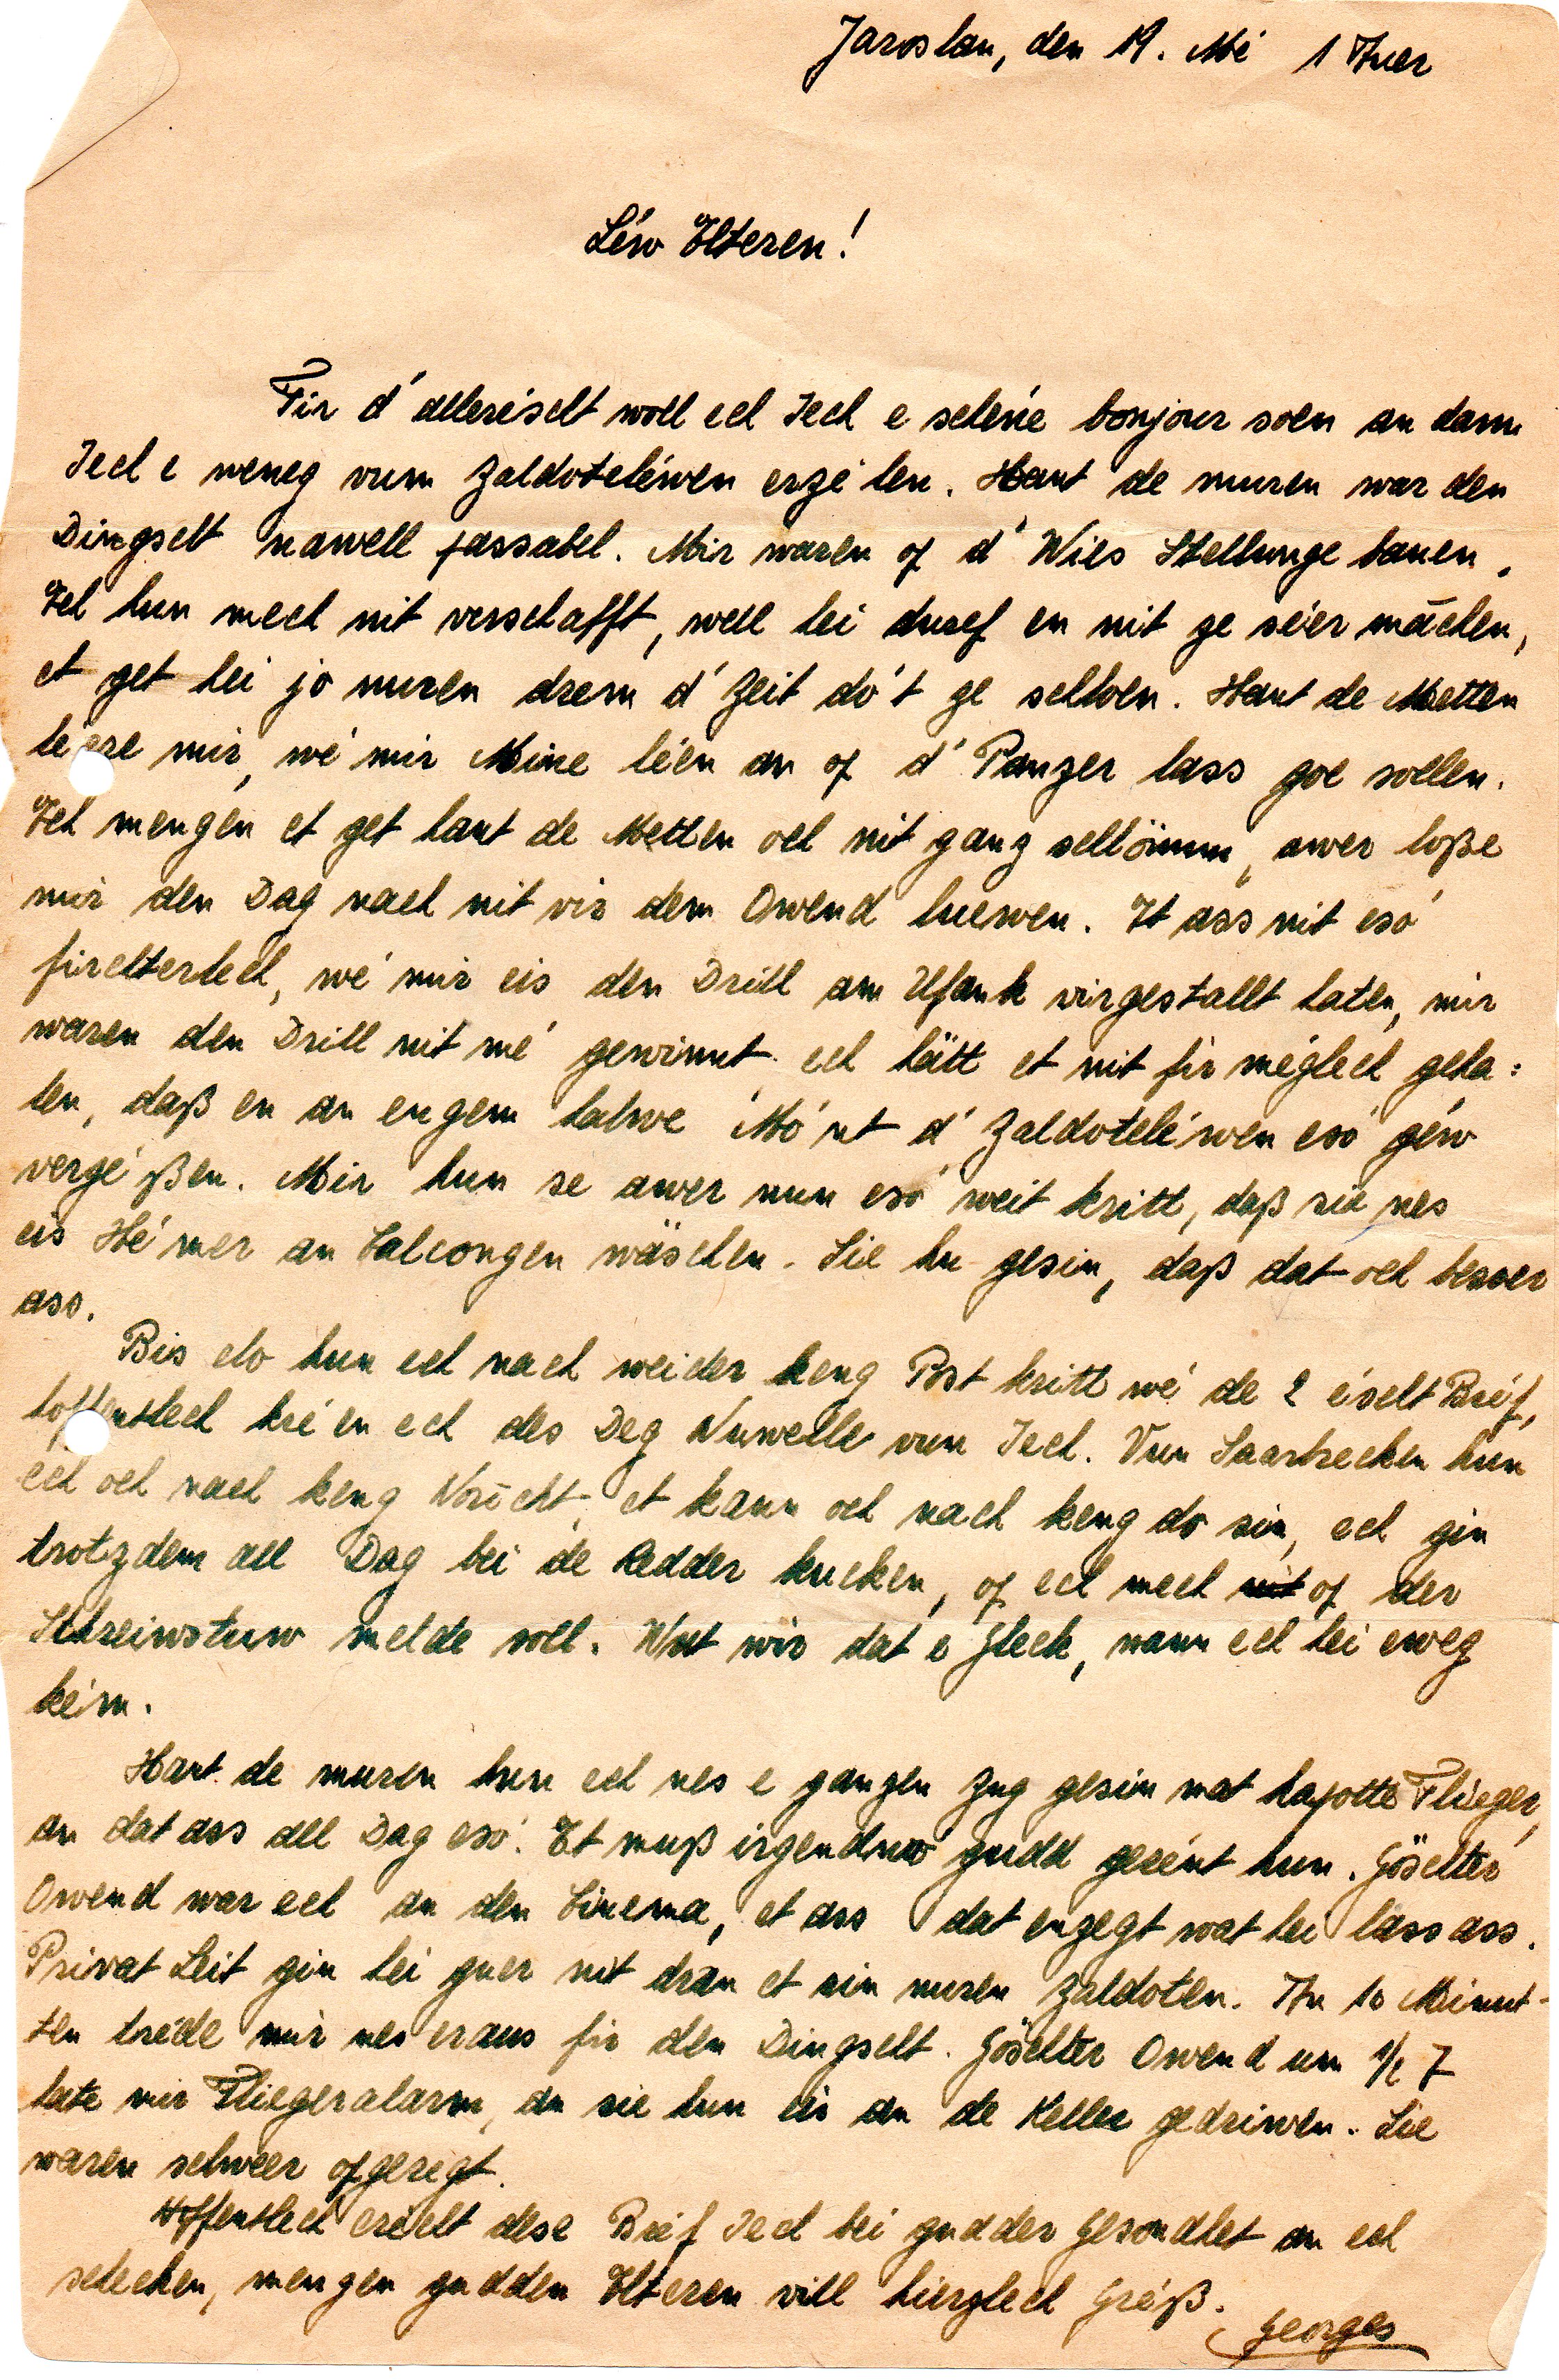 Jaroslau, den 19. Mé 1 Auer
Léw Elteren!
Fir d'alleréischt woll ech Iech e schéine bonjour soen an dann
Iech e weneg vum Zaldoteléwen erzé'len. Haut de muren war den
Dingscht nawell passabel. Mir waren op d'Wies Stellunge bauen,
Ech hun mech nit verschafft, well hei duref en nit ze séier māchen,
et get hei jo nuren drem d'Zeit do't ze schloen. Haut de Metten
lé re mir, wé mir Mine léen an op d'Panzer lass goe sollen.
Ech mengen et get haut de Metten och nit ganz schlömm, awer loße
mir den Dag nach nit vir dem Owend luewen. Et ass nit esó
firchterlech, wé mir eis den Drill am Ufank virgestallt haten, mir
waren den Drill nit mé gewinnt, ech hätt et nit fir méglech geha:
len, daß en an engem halwe Mo'nt d'Zaldoteléwen esó géw
vergé ßen. Mir hun se awer nun esó weit kritt, daß sie nes
eis Hé mer an Calcongen wäschen. Sie hu gesin, daß dat och besser
ass.
Bis elo hun ech nach weider keng Post kritt wé de 2 éischt Bréf,
hoffentlech kré en ech des Deg Nuwelle vun Iech. Vun Saarbrecken hun
ech och nach keng Noricht, et kann och nach keng do sin, ech gin
trotzdem all Dag bei de Redder kucken, of ech mech nit of der
Schreiwstuw melde soll. Wat wir dat e Gleck, wann ech hei eweg
kéim.
Haut de muren hun ech nes e ganzen Zug gesin mat kapotte Flieger,
an dat ass all Dag esó. Et muß irgendwo gudd gerént hun. Göschter
Owend war ech an den Cinema, et ass dat enzegt wat hei lass ass.
Privat Leit gin hei guer nit dran et sin nuren Zaldoten. An 10 Minut-
ten tréde mir nes eraus fir den Dingscht. Göschter Owend um ½ 7
hate mir Fliegeralarm, an sie hun eis an de Keller gedriwen. Sie
waren schweer opgeregt.
Hoffentlech erécht dese Bréf Iech bei gudder Gesondhet an ech
schecken, mengen gudden Elteren vill hierzlech Gréß.
Georges